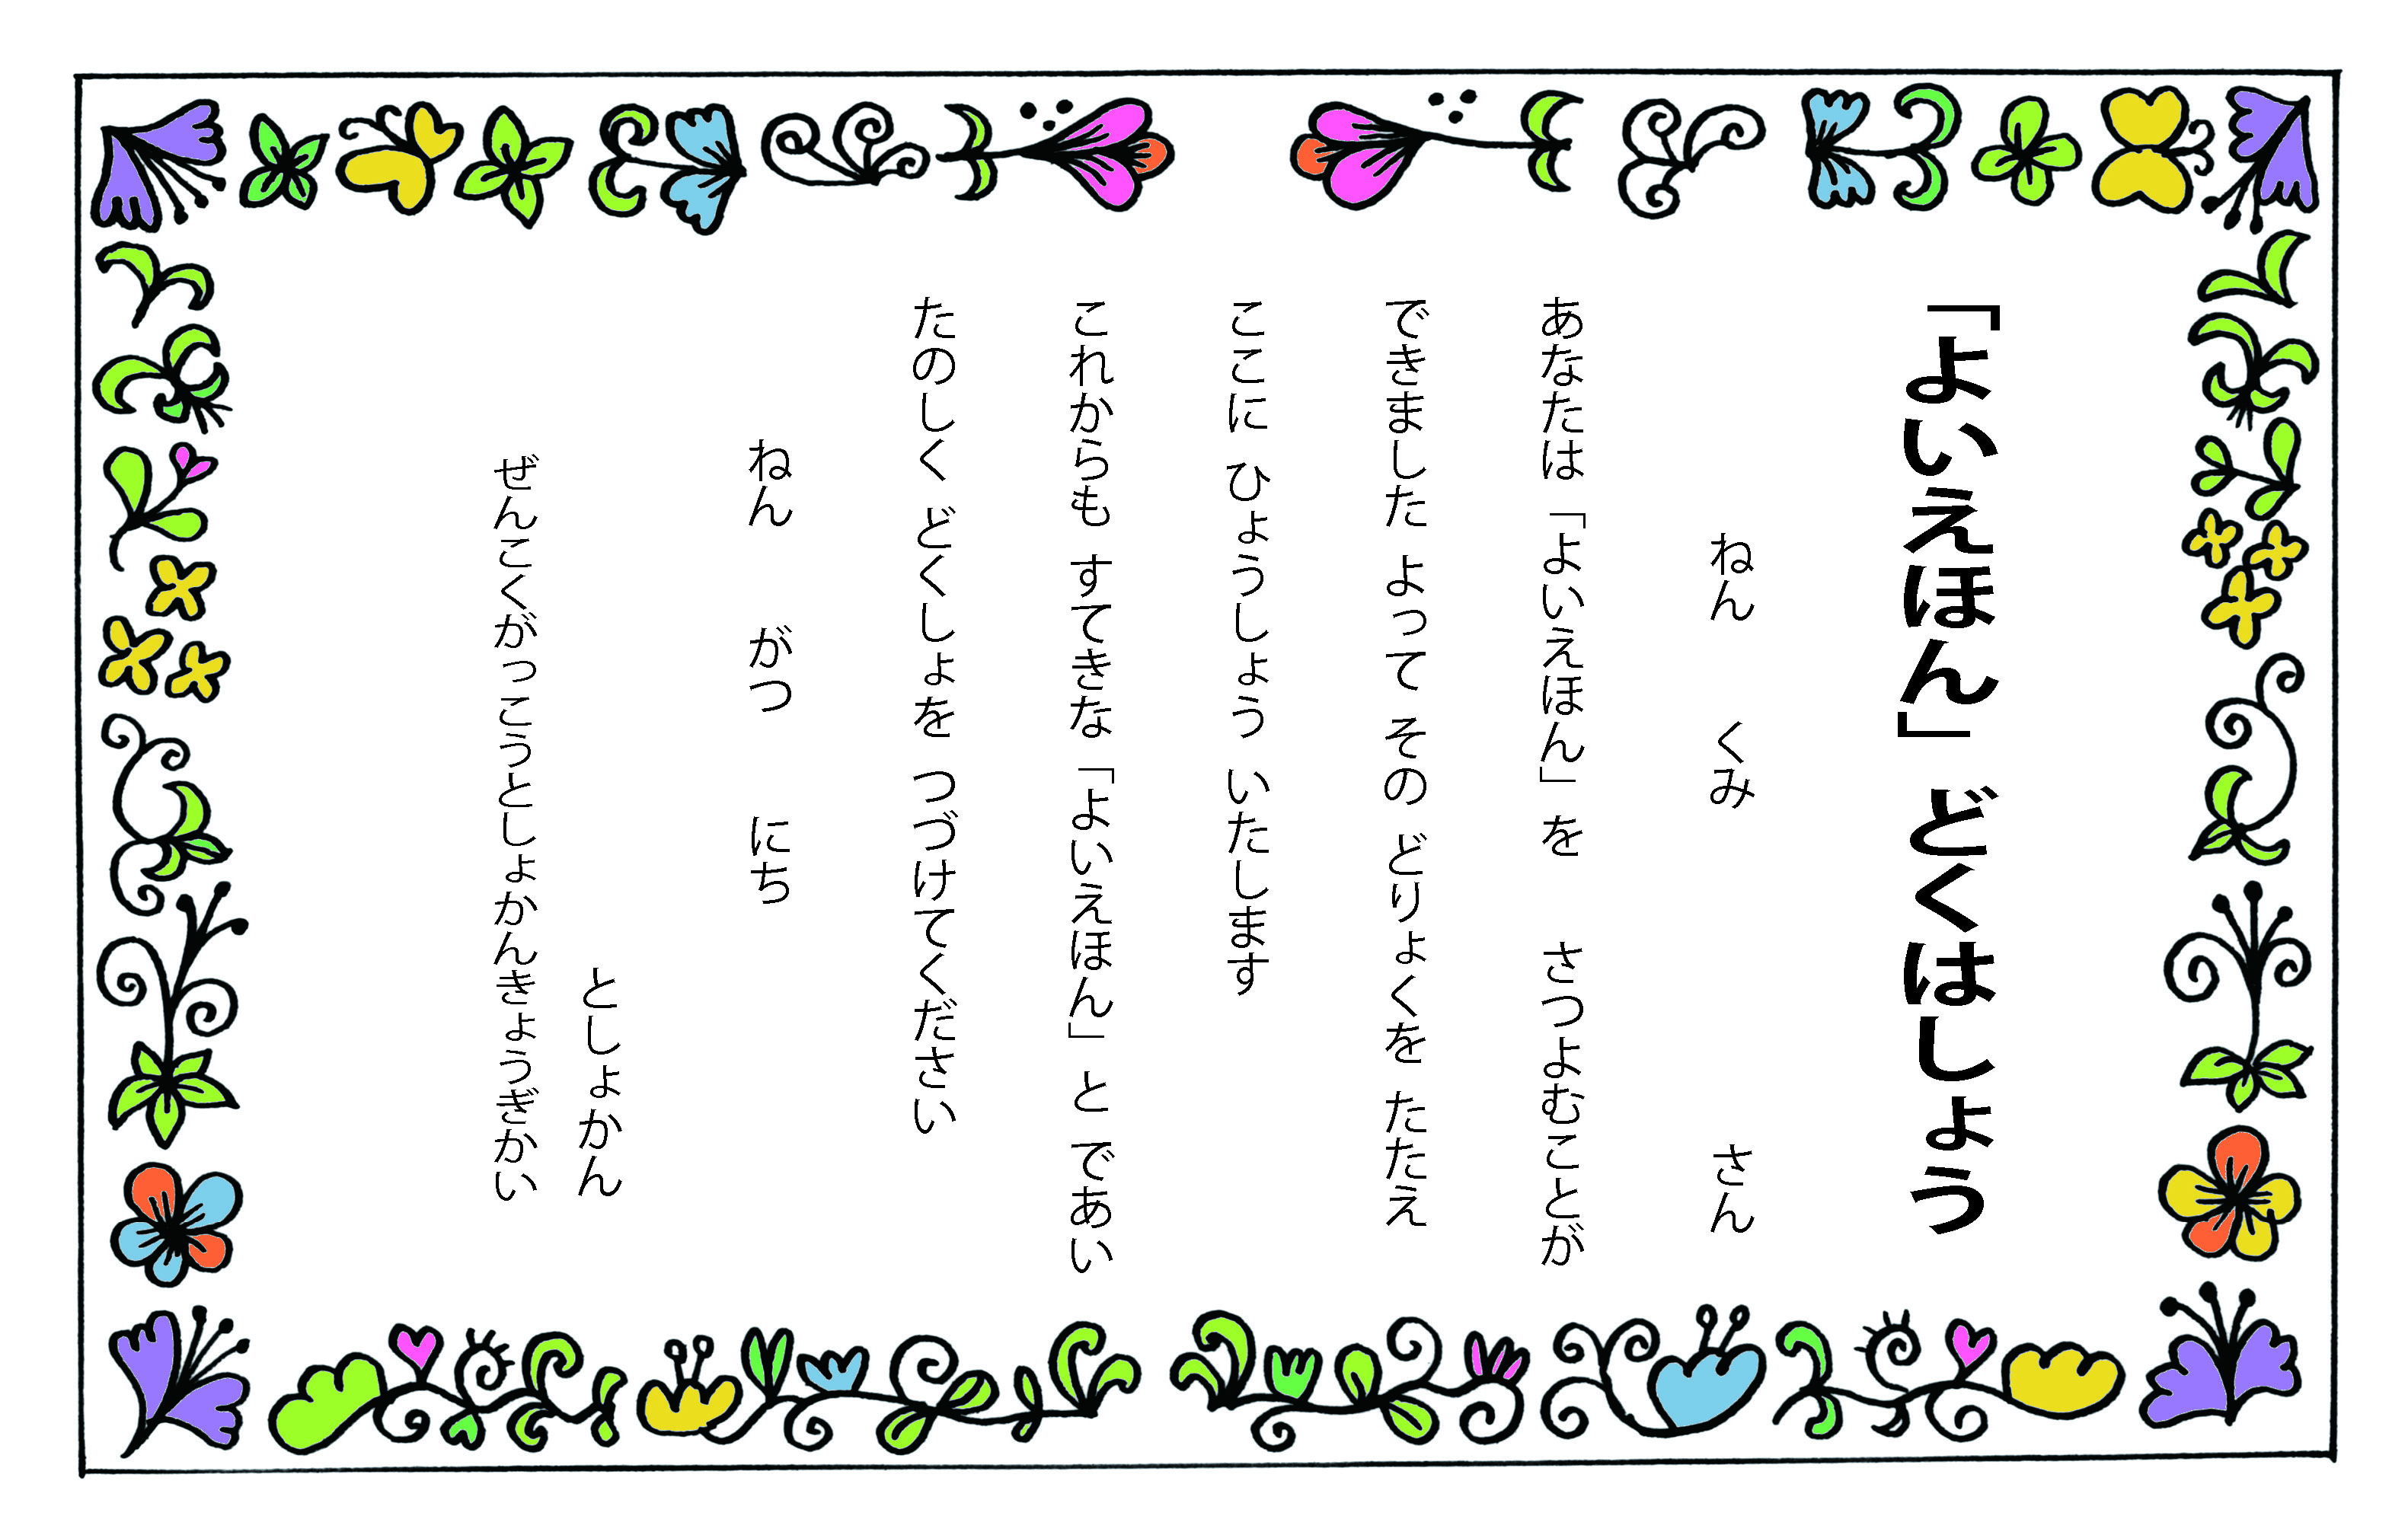 「よいえほん」どくはしょう
ねん　くみ　さん
あなたは「よいえほん」を　さつよむことが
できました よって その どりょくを たたえ
ここに ひょうしょう いたします
これからも すてきな「よいえほん」と であい
たのしく どくしょを つづけてください
ねん　がつ　にち
としょかん
ぜんこくがっこうとしょかんきょうぎかい